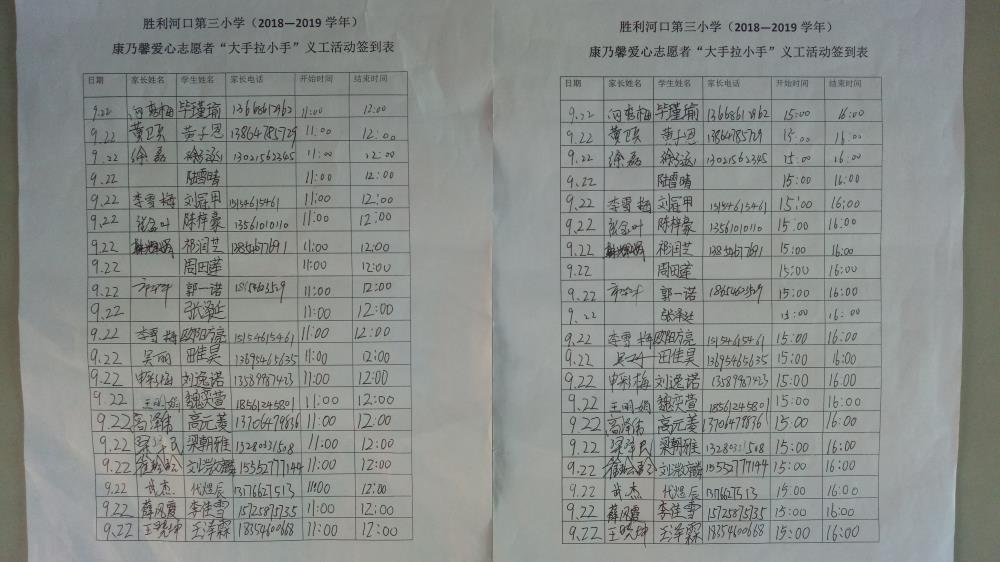 胜利河口第三小学（2018—2019 学年）
康乃馨爱心志愿者“大手拉小手”义工活动签到表
日期 家长姓名 学生姓名 家长电话 开始时间 结束时间
9.22 毕瑾瑜 13668612962 11:00 12:00
9.22 黄卫英 黄子恩 13864785729 11:00 12:00
9.22 徐磊 13021562345 11:00 12:00
9.22 陆雪晴 11:00 12:00
9.22 李雪梅 刘冠甲 15154615461 11:00 12:00
9.22 张金叶 陈梓豪 13561010110 11:00 12:00
9.22 祁润芝 11:00 12:00
9.22 周田莲 11:00 12:00
9.22 郭一诺 11:00 12:00
9.22 张泽延 11:00 12:00
9.22 李雪梅 欧阳方亮 15154615461 11:00 12:00
9.22 吴丽 田佳昊 13695465635 11:00 12:00
9.22 申彩梅 刘逸诺 13589987423 11:00 12:00
9.22 王明娟 魏奕萱 18561245801 11:00 12:00
9.22 高泽伟 高元菱 13706479836 11:00 12:00
9.22 梁朝雅 13280331508 11:00 12:00
9.22 15552777144 11:00 12:00
9.22 武杰 代煜辰 13176627513 11:00 12:00
9.22 薛风霞 李佳雪 15725875735 11:00 12:00
9.22 王晓坤 王泽霖 18354600668 11:00 12:00
胜利河口第三小学（2018—2019 学年）
康乃馨爱心志愿者“大手拉小手”义工活动签到表
日期 家长姓名 学生姓名 家长电话 开始时间 结束时间
9.22 毕瑾瑜 13668612962 15:00 16:00
9.22 黄卫英 黄子恩 13864785729 15:00 16:00
9.22 徐磊 13021562345 15:00 16:00
9.22 陆雪晴 15:00 16:00
9.22 李雪梅 刘冠甲 15154615461 15:00 16:00
9.22 张金叶 陈梓豪 13561010110 15:00 16:00
9.22 祁润芝 15:00 16:00
9.22 周田莲 15:00 16:00
9.22 郭一诺 15:00 16:00
9.22 张泽延 15:00 16:00
9.22 李雪梅 欧阳方亮 15154615461 15:00 16:00
9.22 田佳昊 13695465635 15:00 16:00
9.22 申彩梅 刘逸诺 13589987423 15:00 16:00
9.22 王明娟 魏奕萱 18561245801 15:00 16:00
9.22 高泽伟 高元菱 13706479836 15:00 16:00
9.22 梁朝雅 13280331508 15:00 16:00
9.22 15552777144 15:00 16:00
9.22 武杰 代煜辰 13176627513 15:00 16:00
9.22 薛风霞 李佳雪 15725875735 15:00 16:00
9.22 王晓坤 王泽霖 18354600668 15:00 16:00